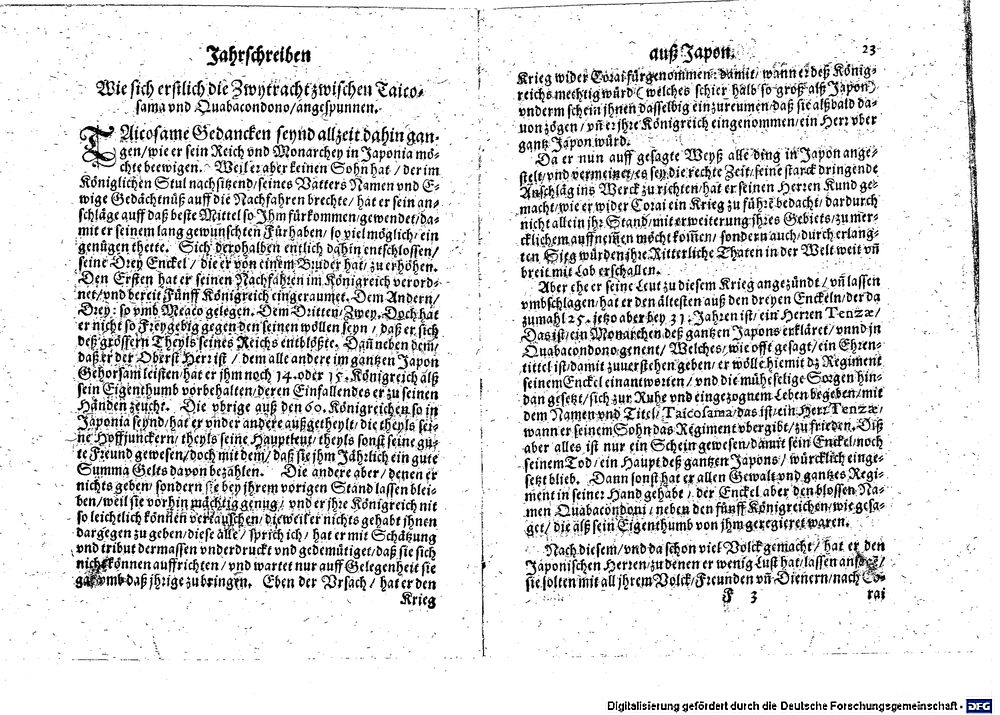 Jahrschreiben
Wie sich erstlich die Zwytracht zwischen Taico-
sama vnd Quabacondono/angespunnen.
TAicosame Gedancken seynd allzeit dahin gan-
gen/wie er sein Reich vnd Monarchey in Japonia mö-
chte beewigen. Weil er aber keinen Sohn hat/der im
Königlichen Stul nachsitzend/seines Vatters Namen vnd E-
wige Gedächtnüß auff die Nachfahren brechte/hat er sein an-
schläge auff daß beste Mittel so Ihm fürkommen/gewendet/da-
mit er seinem lang gewunschten Fürhaben/so viel möglich/ein
genügen thette. Sich derohalben entlich dahin entschlossen/
seine Drey Enckel/die er von einem Bruder hat/zu erhöhen.
Den Ersten hat er seinen Nachfahren im Königreich verord-
net/vnd bereit Fünff Königreich eingeraumet. Dem Andern/
Drey: so vmb Meaco gelegen. Dem Dritten/Zwey. Doch hat
er nicht so Freygebig gegen den seinen wöllen seyn/daß er sich
deß grössern Theyls seines Reichs entblößte. Dañ neben dem/
daß er der Oberst Herr ist/dem alle andere im gantzen Japon
Gehorsam leisten/hat er jhm noch 14. oder 15. Königreich alß
sein Eigenthumb vorbehalten/deren Einfallendes er zu seinen
Händen zeucht. Die vbrige auß den 60. Königreichen so in
Japonia seynd/hat er vnder andere außgetheylt/die theyls sei-
ne Hoffjunckern/theyls seine Hauptleut/theyls sonst seine gu-
te Freund gewesen/doch mit dem/daß sie jhm Jährlich ein gute
Summa Geles davon bezählen. Die andere aber/denen er
nichts geben/sondern sie bey jhrem vorigen Stand lassen blei-
ben/weil sie vorhin mächtig genug/vnd er jhre Königreich nit
so leichtlich können vertauschen/dieweil er nichts gehabt jhnen
dargegen zu geben/diese alle/sprich ich/hat er mit Schätzung
vnd tribut dermassen vnderdruckt vnd gedemütiget/daß sie sich
nicht können auffrichten/vnd wartet nur auff Gelegenheit sie
gar vmb daß jhrige zubringen. Eben der Vrsach/hat er den
Krieg
auß Japon. 23
Krieg wider Corai fürgenommen: damit/wann er deß König-
reichs mechtig würd (welches schier halb so groß alß Japon)
vnderm schein jhnen dasselbig einzureumen/daß sie alßbald da-
uon zögen/vñ er jhre Königreich eingenommen/ein Herr vber
gantz Japon würd.
Da er nun auff gesagte Weyß alle ding in Japon ange-
stelt/vnd vermeinet/es sey die rechte Zeit/seine starck dringende
Anschläg ins Werck zu richten/hat er seinen Herren Kund ge-
macht/wie er wider Corai ein Krieg zu führẽ bedacht/dardurch
nicht allein jhr Stand/mit erweiterung jhres Gebiets/zu mer-
cklichem auffnemen möcht kom̃en/sondern auch/durch erlang-
ten Sieg würden jhre Ritterliche Thaten in der Welt weit vñ
breit mit Lob erschallen.
Aber ehe er seine Leut zu diesem Krieg angezündt/vñ lassen
vmbschlagen/hat er den ältesten auß den dreyen Enckeln/der da
zumahl 25. jetzo aber bey 31. Jahren ist/ein Herren Tenzæ/
Das ist/ein Monarchen deß gantzen Japons erkläret/vnnd in
Quabacondono genent/Welches/wie offt gesagt/ein Ehren-
tittel ist/damit zuuerstehen geben/er wölle hiemit dz Regiment
seinem Enckel einantworten/vnd die müheselige Sorgen hin-
dan gesetzt/sich zur Ruhe vnd eingezognem Leben begeben/mit
dem Namen vnd Titel/Taicosama/das ist/ein Herr Tenzæ/
wann er seinem Sohn das Regiment vbergibt/zu frieden. Diß
aber alles ist nur ein Schein gewesen/damit sein Enckel/noch
seinem Tod/ein Haupt deß gantzen Japons/würcklich einge-
setzt blieb. Dann sonst hat er allen Gewalt vnd gantzes Regi-
ment in seiner Hand gehabt/der Enckel aber den blossen Na-
men Quabacondoni/neben den fünff Königreichen/wie gesa-
get/die alß sein Eigenthumb von jhm geregieret waren.
Nach diesem/vnd da schon viel Volck gemacht/hat er den
Japonischen Herren/zu denen er wenig Lust hat/lassen
sie solten mit all jhrem Volck/Freunden vñ Dienern/nach Co-
F 3 rai
Digitalisierung gefördert durch die Deutsche Forschungsgemeinschaft - DFG